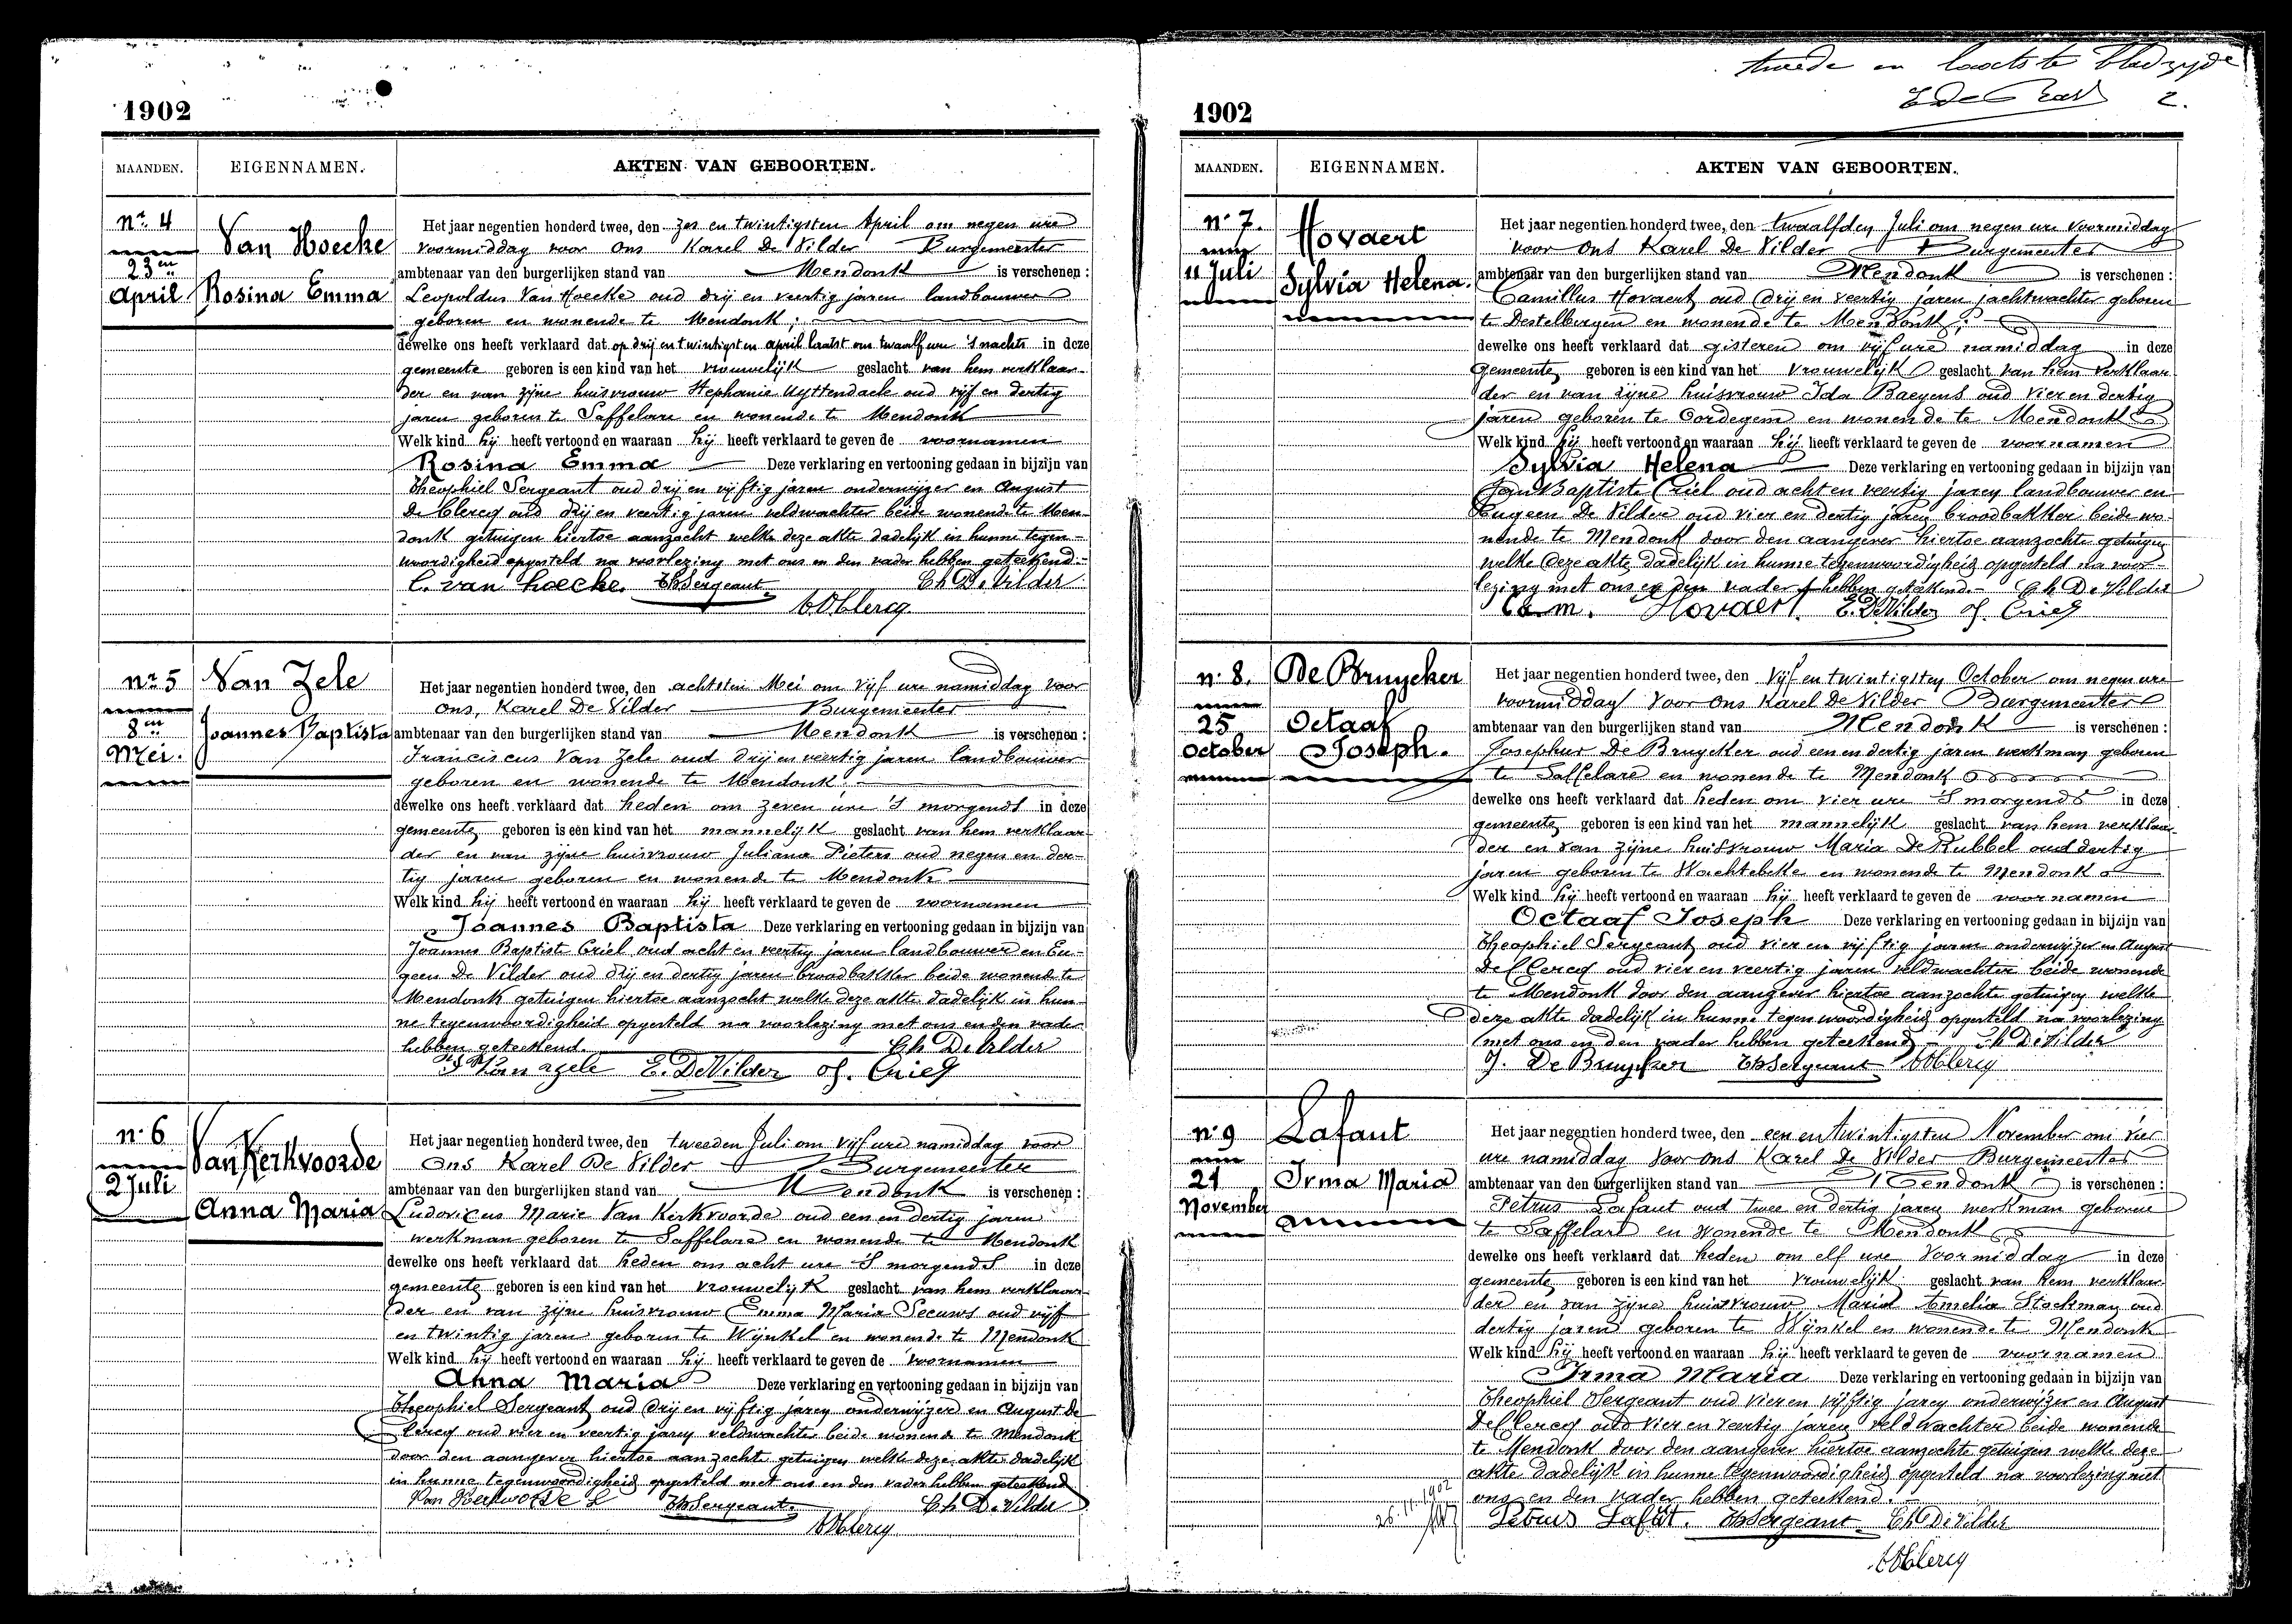 1902
MAANDEN. EIGENNAMEN. AKTEN VAN GEBOORTEN.
nr. 4
23en
April
Van Hoecke
Rosina Emma
Het jaar negentien honderd twee, den zes en twintigsten April om negen ure
voormiddag voor ons Karel De Vilder Burgemeester
ambtenaar van den burgerlijken stand van Mendonk is verschenen :
Leopoldus Van Hoecke oud drij en veertig jaren landbouwer
geboren en wonende te Mendonk ;
dewelke ons heeft verklaard dat op drij en twintigsten april laatst om twaalf ure 's nachts in deze
gemeente geboren is een kind van het vrouwelijk geslacht van hem verklaar-
der en van zijne huisvrouw Stephanie Uyttendaele oud vijf en dertig
jaren geboren te Saffelare en wonende te Mendonk
Welk kind hij heeft vertoond en waaraan hij heeft verklaard te geven de voornamen
Rosina Emma Deze verklaring en vertooning gedaan in bijzijn van
Theophiel Sergeant oud drij en vijftig jaren onderwijzer en August
De Clercq oud drij en veertig jaren veldwachter beide wonende te Men-
donk getuigen hiertoe aanzocht welke deze akte dadelijk in hunne tegen-
woordigheid opgesteld na voorlezing met ons en den vader hebben geteekend.-
L. van hoecke. Th Sergeant Ch De Vilder
A De Clercq
nr. 5
8en
Mei.
Van Zele
Joannes Baptista
Het jaar negentien honderd twee, den achtsten Mei om vijf ure namiddag voor
ons, Karel De Vilder Burgemeester
ambtenaar van den burgerlijken stand van Mendonk is verschenen :
Franciscus Van Zele oud drij en veertig jaren landbouwer
geboren en wonende te Mendonk.
dewelke ons heeft verklaard dat heden om zeven ure 's morgends in deze
gemeente geboren is een kind van het mannelijk geslacht van hem verklaar-
der en van zijne huisvrouw Juliana Pieters oud negen en der-
tig jaren geboren en wonende te Mendonk
Welk kind hij heeft vertoond en waaraan hij heeft verklaard te geven de voornamen
Joannes Baptista Deze verklaring en vertooning gedaan in bijzijn van
Joannes Baptist Criel oud acht en veertig jaren landbouwer en Eu-
geen De Vilder oud drij en dertig jaren broodbakker beide wonende te
Mendonk getuigen hiertoe aanzocht welke deze akte dadelijk in hun-
ne tegenwoordigheid opgesteld na voorlezing met ons en den vader
hebben geteekend. Ch De Vilder
Van zele E. De Vilder J. Criel
n. 6
2 Juli
Van Kerkvoorde
Anna Maria
Het jaar negentien honderd twee, den tweeden Juli om vijf ure namiddag voor
Ons Karel De Vilder Burgemeester
ambtenaar van den burgerlijken stand van Mendonk is verschenen :
Ludovicus Marie Van Kerkvoorde oud een en dertig jaren
werkman geboren te Saffelare en wonende te Mendonk
dewelke ons heeft verklaard dat heden om acht ure 's morgends in deze
gemeente geboren is een kind van het vrouwelijk geslacht van hem verklaar-
der en van zijne huisvrouw Emma Maria Seeuws oud vijf
en twintig jaren geboren te Wijnkel en wonende te Mendonk
Welk kind hij heeft vertoond en waaraan hij heeft verklaard te geven de voornamen
Anna Maria Deze verklaring en vertooning gedaan in bijzijn van
Theophiel Sergeant oud drij en vijftig jaren onderwijzer en August de
Clercq oud vier en veertig jaren veldwachter beide wonende te Mendonk
door den aangever hiertoe aanzocht getuigen welke deze akte dadelijk
in hunne tegenwoordigheid opgesteld met ons en den vader hebben geteekend
Van Kerkvoorde L Th Sergeant Ch De Vilder
A De Clercq
tweede en laatste bladzijde
2.
1902
MAANDEN. EIGENNAMEN. AKTEN VAN GEBOORTEN.
n. 7.
11 Juli
Hovaert
Sylvia Helena.
Het jaar negentien honderd twee, den twaalfden Juli om negen ure voormiddag
voor Ons Karel De Vilder Burgemeester
ambtenaar van den burgerlijken stand van Mendonk is verschenen :
Camillus Hovaert oud drij en veertig jaren jachtwachter geboren
te Destelbergen en wonende te Mendonk ;
dewelke ons heeft verklaard dat gisteren om vijf ure namiddag in deze
gemeente geboren is een kind van het vrouwelijk geslacht van hem verklaar-
der en van zijne huisvrouw Ida Baeyens oud vier en dertig
jaren geboren te Oordegem en wonende te Mendonk
Welk kind hij heeft vertoond en waaraan hij heeft verklaard te geven de voornamen
Sylvia Helena Deze verklaring en vertooning gedaan in bijzijn van
Jan Baptiste Criel oud acht en veertig jaren landbouwer en
Eugeen De Vilder oud vier en dertig jaren broodbakker beide wo-
nende te Mendonk door den aangever hiertoe aanzochte getuigen
welke deze akte dadelijk in hunne tegenwoordigheid opgesteld na voor-
lezing met ons en den vader hebben geteekend.- Ch De Vilder
Cam. Hovaert. E. De Vilder J. Criel
n. 8.
25
October
De Bruycker
Octaaf
Joseph.
Het jaar negentien honderd twee, den vijf en twintigsten October om negen ure
voormiddag Voor Ons Karel De Vilder Burgemeester
ambtenaar van den burgerlijken stand van Mendonk is verschenen :
Josephus De Bruycker oud een en dertig jaren werkman geboren
te Saffelare en wonende te Mendonk
dewelke ons heeft verklaard dat heden om vier ure 's morgends in deze
gemeente geboren is een kind van het mannelijk geslacht van hem verklaar-
der en van zijne huisvrouw Maria De Kubbel oud dertig
jaren geboren te Wachtebeke en wonende te Mendonk
Welk kind hij heeft vertoond en waaraan hij heeft verklaard te geven de voornamen
Octaaf Joseph Deze verklaring en vertooning gedaan in bijzijn van
Theophiel Sergeant oud vier en vijftig jaren onderwijzer en August
De Clercq oud vier en veertig jaren veldwachter beide wonende
te Mendonk door den aangever hiertoe aanzochte getuigen welke
deze akte dadelijk in hunne tegenwoordigheid opgesteld na voorlezing
met ons en den vader hebben geteekend Ch De Vilder
J. De Bruycker Th Sergeant A De Clercq
n. 9
21
November
Lafaut
Irma Maria
Het jaar negentien honderd twee, den een en twintigsten November om vier
ure namiddag Voor Ons Karel De Vilder Burgemeester
ambtenaar van den burgerlijken stand van Mendonk is verschenen :
Petrus Lafaut oud twee en dertig jaren werkman geboren
te Saffelare en wonende te Mendonk
dewelke ons heeft verklaard dat heden om elf ure Voormiddag in deze
gemeente geboren is een kind van het vrouwelijk geslacht van hem verklaar-
der en van zijne huisvrouw Maria Amelia Stockman oud
dertig jaren geboren te Wijnkel en wonende te Mendonk
Welk kind hij heeft vertoond en waaraan hij heeft verklaard te geven de voornamen
Irma Maria Deze verklaring en vertooning gedaan in bijzijn van
Theophiel Sergeant oud vier en vijftig jaren onderwijzer en August
De Clercq oud vier en veertig jaren veldwachter beide wonende
te Mendonk door den aangever hiertoe aanzochte getuigen welke deze
akte dadelijk in hunne tegenwoordigheid opgesteld na voorlezing met
ons en den vader hebben geteekend.
26.11.1902
Petrus Lafaut. Th Sergeant Ch De Vilder
A De Clercq